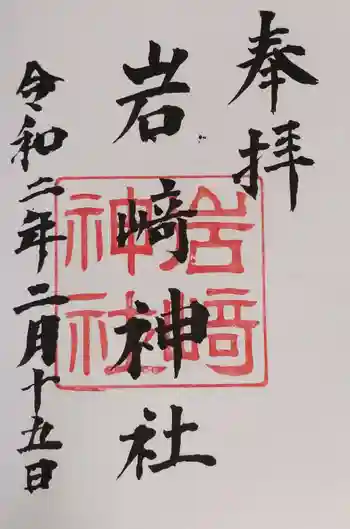 奉拝
岩崎神社
令和二年二月十五日
岩崎
神社